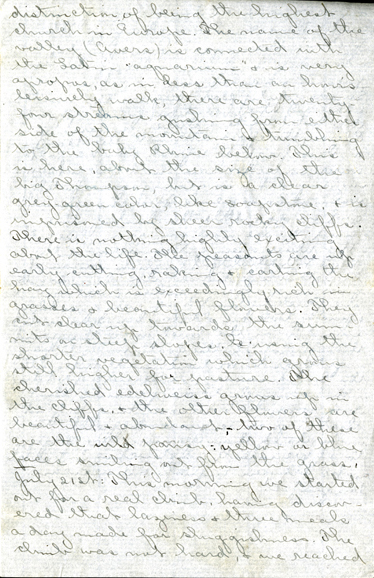 distinction of being the highest
church in Europe. The name of the
valley (Avers) is connected with
the Latin "aquarium" & is very
apropos, as in less than an hours
leisurely walk, there are twenty
four streams gushing from either
side of the mountain & tumbling
to the baby Rhine below. This
is here, about the size of the
big Thompson, but is a clear
grey-green color, like soapstone, & is
imprisoned by sheer rocky cliffs.
There is nothing highly exciting
about the life. The peasants are up
early cutting, raking, & carting the
hay which is exceedingly rich in
grasses & beautiful flowers. They
cut clear up towards the sum-
mits on steep slopes, leaving the
shorter vegetation which grows
still higher for pasture. The
cherished edelweiss grows up in
the cliffs, & the other flowers are
beautiful & abundant, two of these
are the wild pansy: yellow or blue
faces smiling out from the grass.
July 21st. This morning we started
out for a real climb, having discov-
ered that laziness & three meals
a day made for sluggishness. The
climb was not hard, & we reached